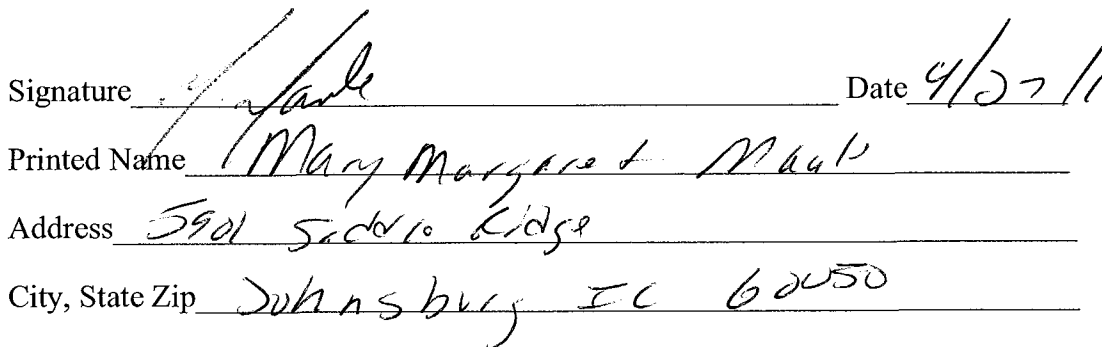 Signature Date 4/27/1
Printed Name Mary Margaret
Address 5901 Ridge
City, State Zip Johnsburg IL 60050